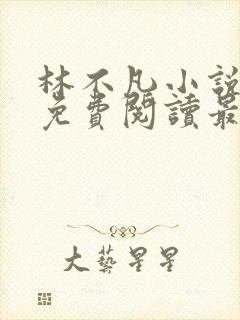 林不凡小說
免費閱讀最
大藝星星